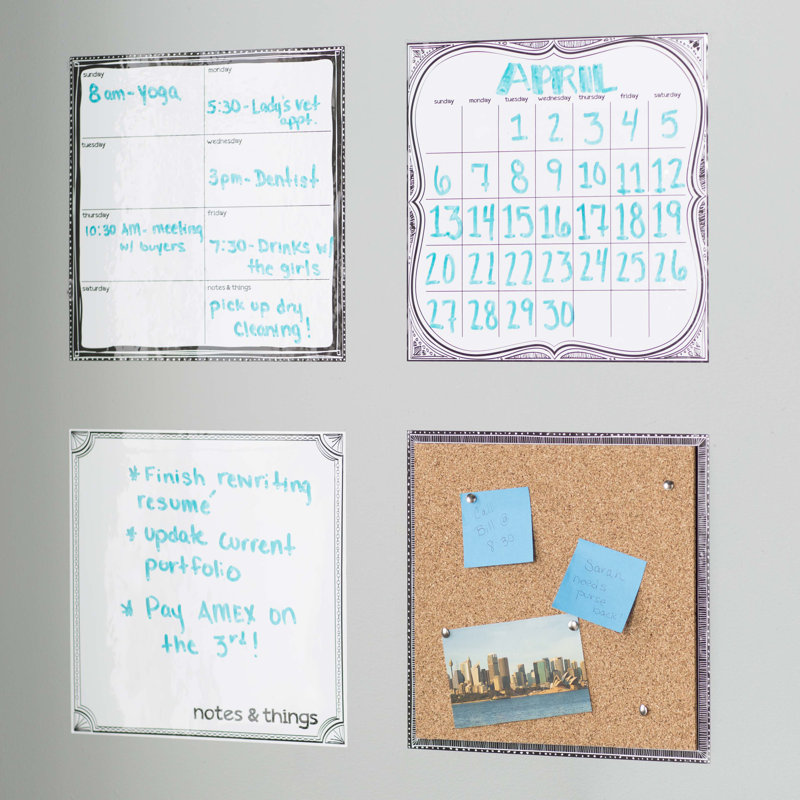 sunday
8am-yoga
monday
5:30-Lady's vet
appt.
tuesday
wednesday
3pm-Dentist
thursday
10:30 AM-meeting
w/ buyers
friday
7:30-Drinks w/
the girls
saturday
notes & things
pick up dry
cleaning!
APRIL
sunday monday tuesday wednesday thursday friday saturday
1 2 3 4 5
6 7 8 9 10 11 12
13 14 15 16 17 18 19
20 21 22 23 24 25 26
27 28 29 30
*Finish rewriting
resumé
*update current
portfolio
*Pay AMEX on
the 3rd!
notes & things
Call
Bill @
8:30
Sarah
needs
purse
back!